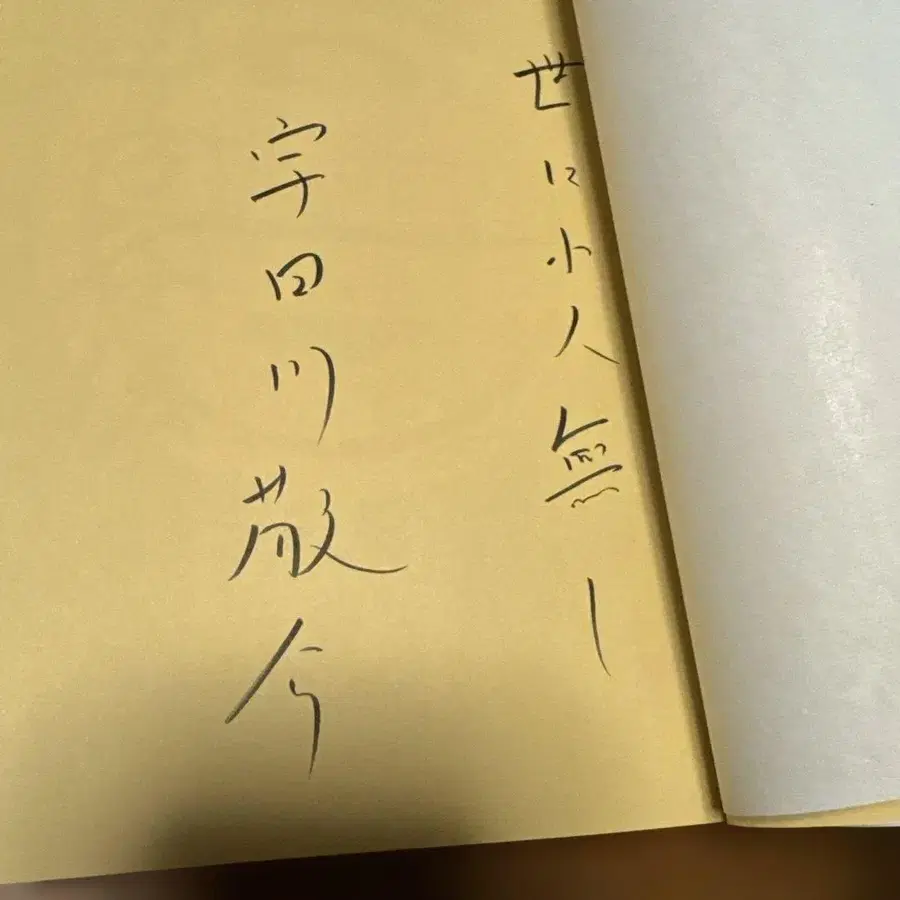 世に小人無し
宇田川敬介